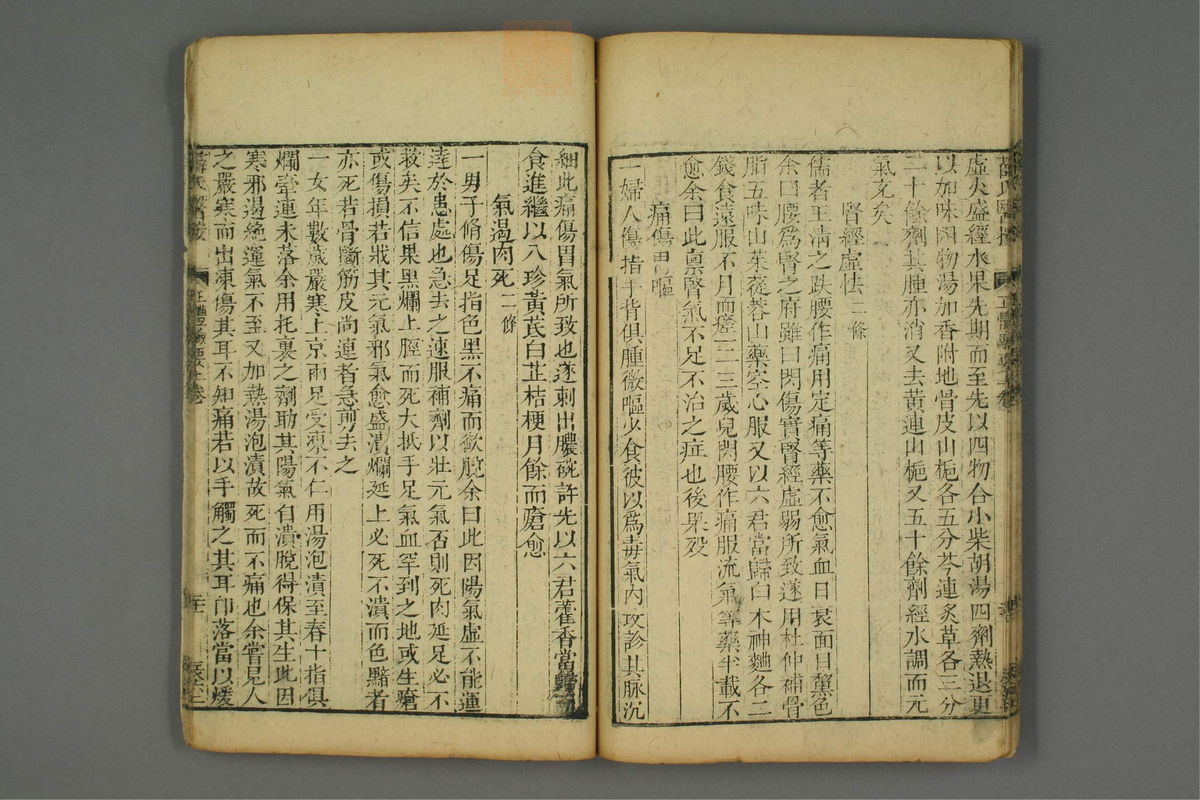 虛火盛經水果先期而至先以四物合小柴胡湯四劑熱退更
以加味四物湯加香附地骨皮山梔各五分芩連炙草各三分
二十餘劑其腫亦消又去黃連山梔又五十餘劑經水調而元
氣充矣
腎經虛怯二條
儒者王清之跌腰作痛用定痛等藥不愈氣血日衰面目黧色
余曰腰爲腎之府雖曰閃傷實腎經虛弱所致遂用杜仲補骨
脂五味山茱蓯蓉山藥空心服又以六君當歸白木神麯各二
錢食遠服不月而瘥一三歲兒閃腰作痛服流氣等藥半載不
愈余曰此稟腎氣不足不治之症也後果歿
痛傷胃嘔
一婦人傷指手背俱腫微嘔少食彼以爲毒氣內攻診其脉沉
細此痛傷胃氣所致也遂刺出膿碗許先以六君藿香當歸而
食進繼以八珍黃芪白芷桔梗月餘而瘡愈
氣遏肉死二條
一男子脩傷足指色黑不痛而欲脫余曰此因陽氣虛不能運
達於患處也急去之速服補劑以壯元氣否則死肉延足必不
救矣不信果黑爛上脛而死大抵手足氣血罕到之地或生瘡
或傷損若戕其元氣邪氣愈盛潰爛延上必死不潰而色黯者
亦死若骨斷筋皮尚連者急剪去之
一女年數歲嚴寒上京兩足受凍不仁用湯泡漬至春十指俱
爛牽連未落余用托裏之劑助其陽氣自潰脫得保其生此因
寒邪遏絶運氣不至又加熱湯泡漬故死而不痛也余嘗見人
之嚴寒而出凍傷其耳不知痛若以手觸之其耳卽落當以煖